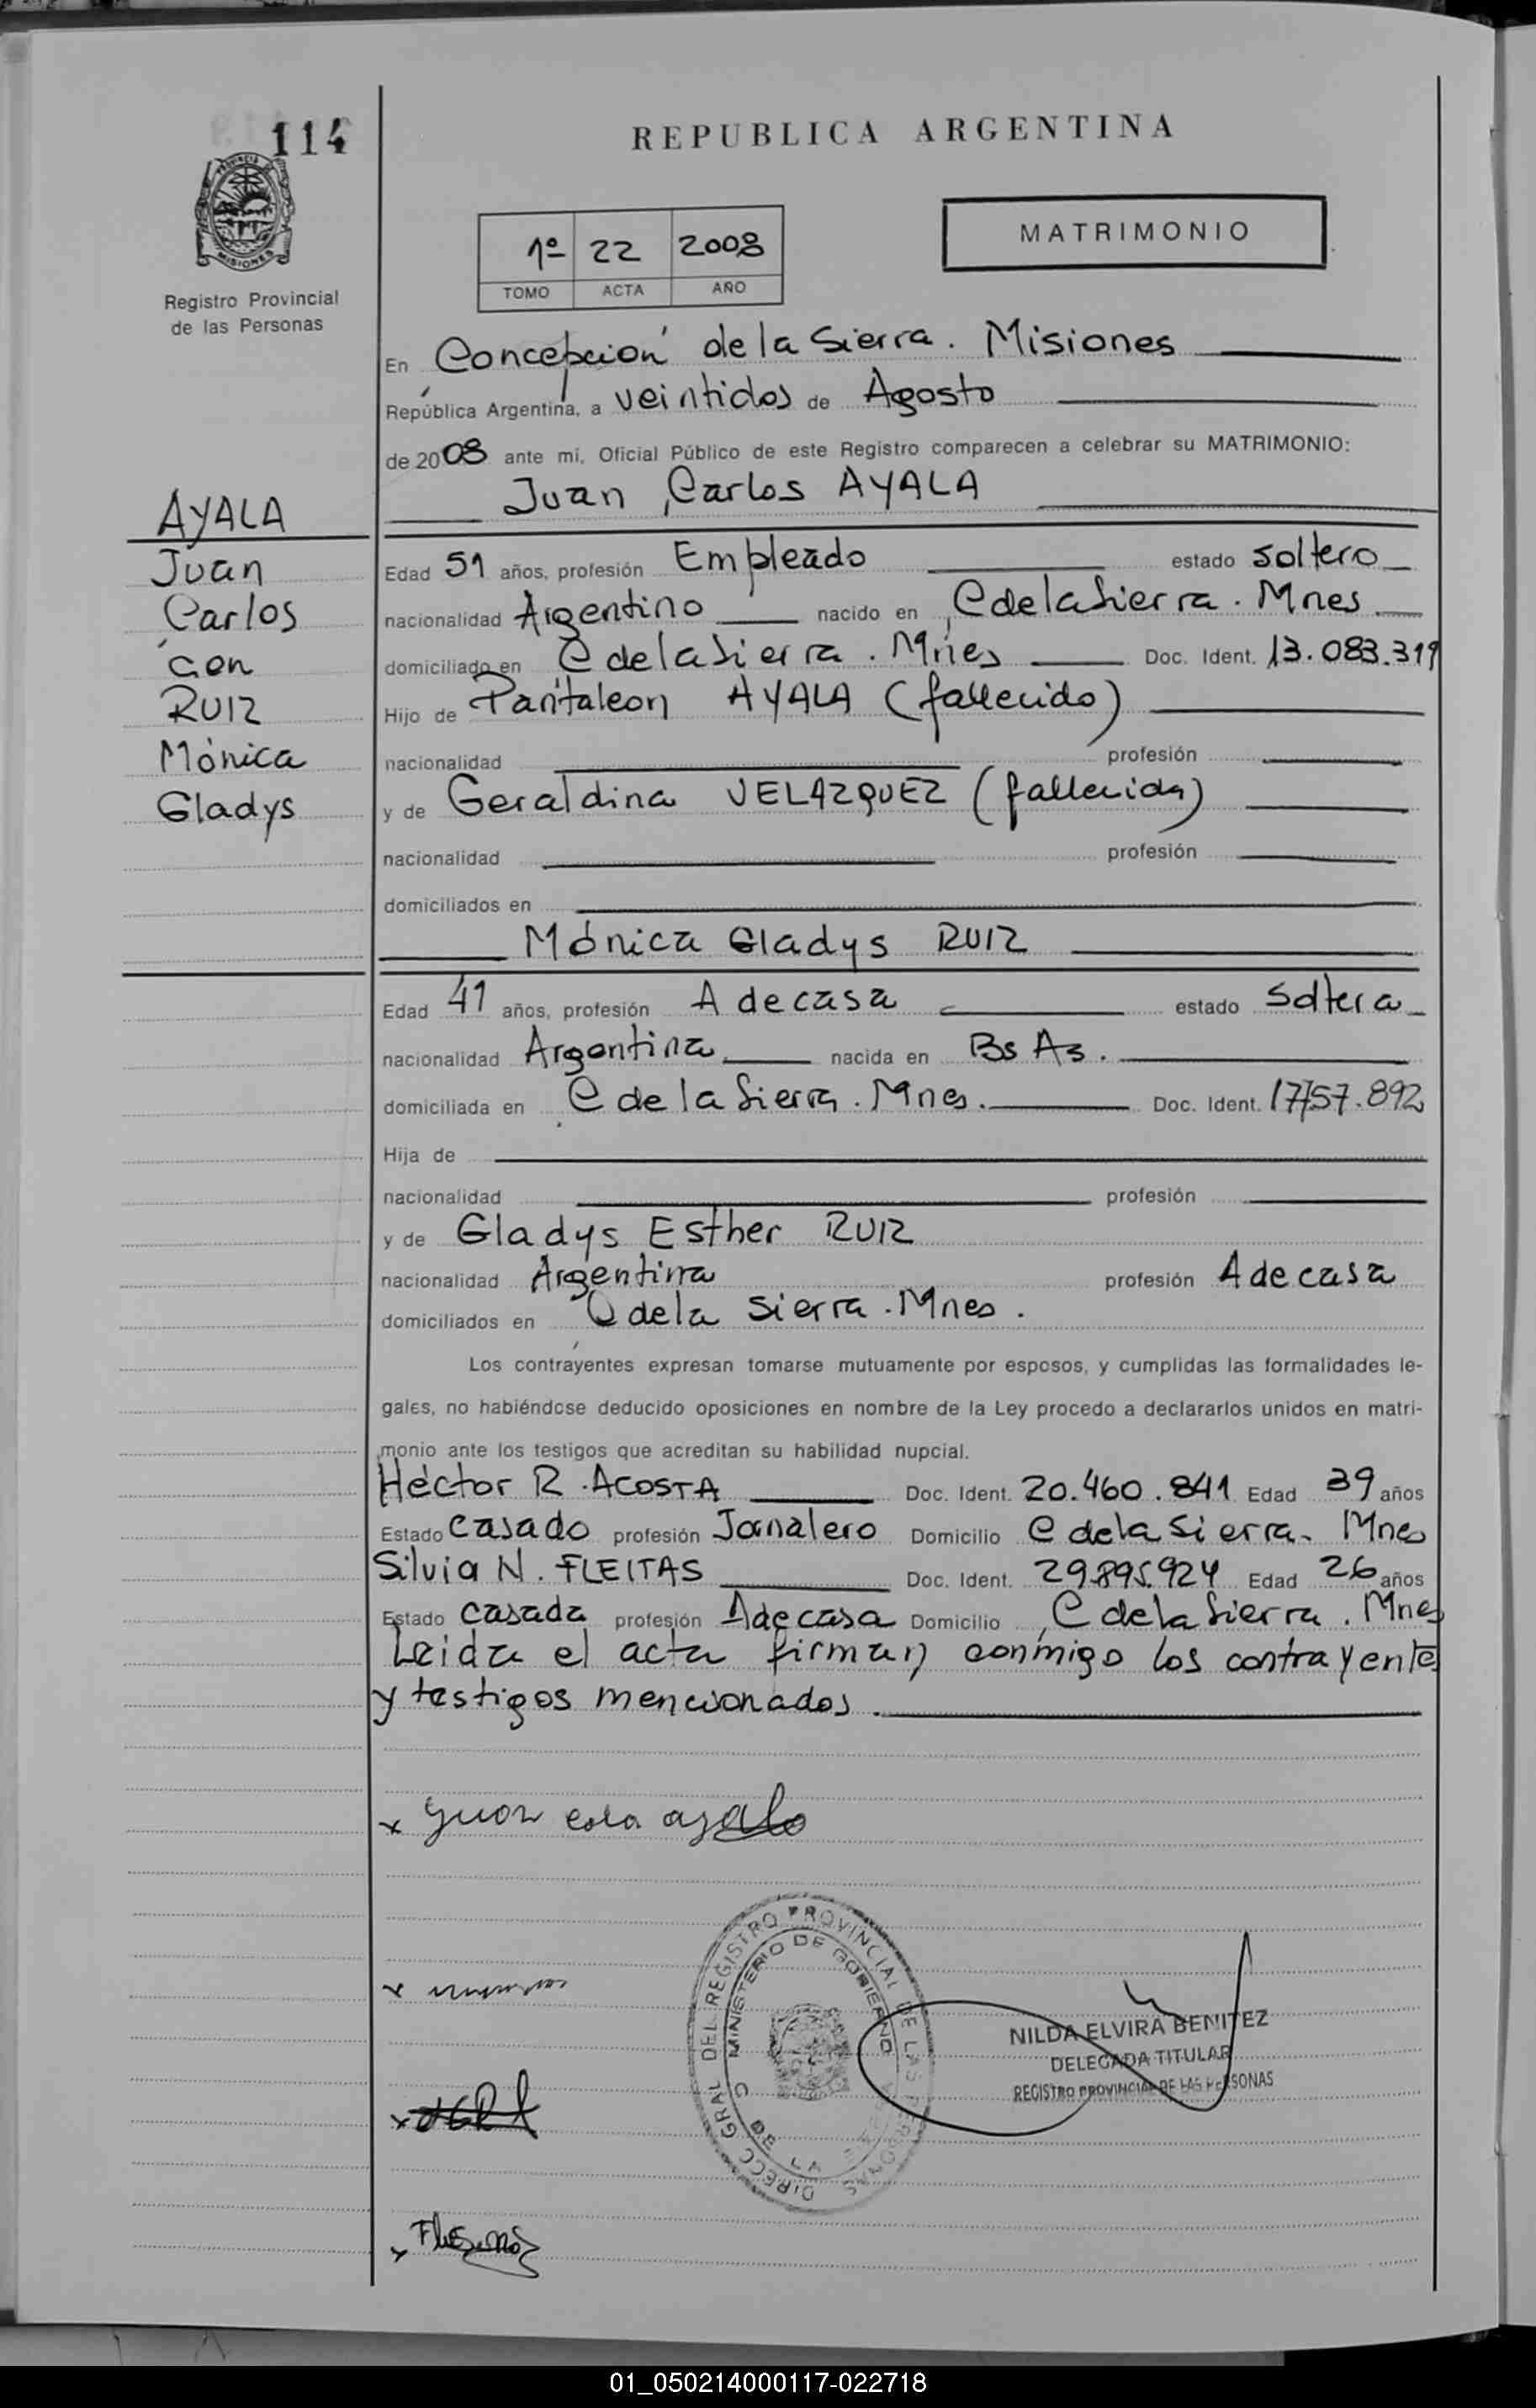 114
REPUBLICA ARGENTINA
PROVINCIA DE
MISIONES
Registro Provincial
de las Personas
1º 22 2008
TOMO ACTA AÑO
MATRIMONIO
En Concepción de la Sierra. Misiones
República Argentina, a veintidos de Agosto
de 2008 ante mí, Oficial Público de este Registro comparecen a celebrar su MATRIMONIO:
Juan Carlos AYALA
AYALA
Juan
Carlos
con
RUIZ
Mónica
Gladys
Edad 51 años, profesión Empleado estado soltero
nacionalidad Argentino nacido en C de la Sierra. Mnes
domiciliado en C de la Sierra. Mnes Doc. Ident. 13.083.319
Hijo de Pantaleon AYALA (fallecido)
nacionalidad profesión
y de Geraldina VELAZQUEZ (fallecida)
nacionalidad profesión
domiciliados en
Mónica Gladys RUIZ
Edad 41 años, profesión A de casa estado Soltera
nacionalidad Argentina nacida en Bs As.
domiciliada en C de la Sierra. Mnes. Doc. Ident. 17757.892
Hija de
nacionalidad profesión
y de Gladys Esther RUIZ
nacionalidad Argentina profesión A de casa
domiciliados en C de la Sierra. Mnes.
Los contrayentes expresan tomarse mutuamente por esposos, y cumplidas las formalidades le-
gales, no habiéndose deducido oposiciones en nombre de la Ley procedo a declararlos unidos en matri-
monio ante los testigos que acreditan su habilidad nupcial.
Héctor R. ACOSTA Doc. Ident. 20.460.841 Edad 39 años
Estado casado profesión Jornalero Domicilio C de la Sierra. Mnes
Silvia N. FLEITAS Doc. Ident. 29.895.924 Edad 26 años
Estado casada profesión A de casa Domicilio C de la Sierra. Mnes
Leida el acta firman conmigo los contrayentes
y testigos mencionados.
x Juan Carlos ayala
DIRECC GRAL DEL REGISTRO PROVINCIAL DE LAS PERSONAS
MINISTERIO DE GOBIERNO
C DE LA SIERRA
NILDA ELVIRA BENITEZ
DELEGADA TITULAR
REGISTRO PROVINCIAL DE LAS PERSONAS
01_050214000117-022718